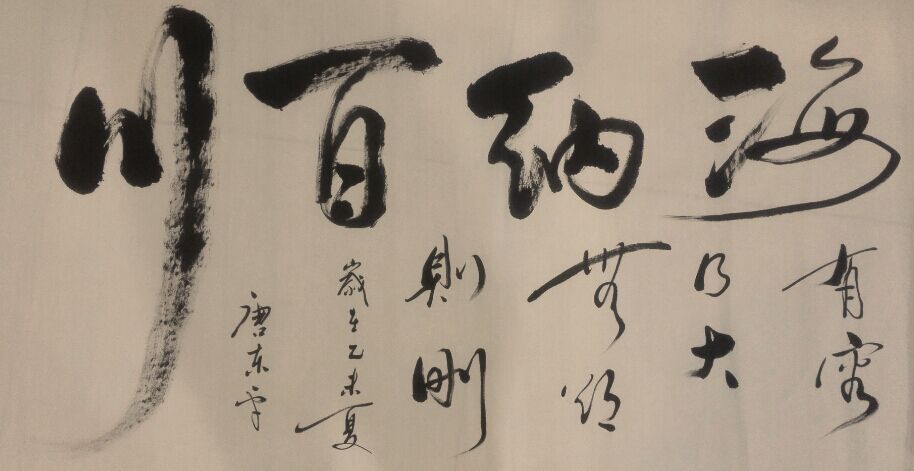 海纳百川
有容
乃大
無欲
則刚
歲在乙未夏
唐东平